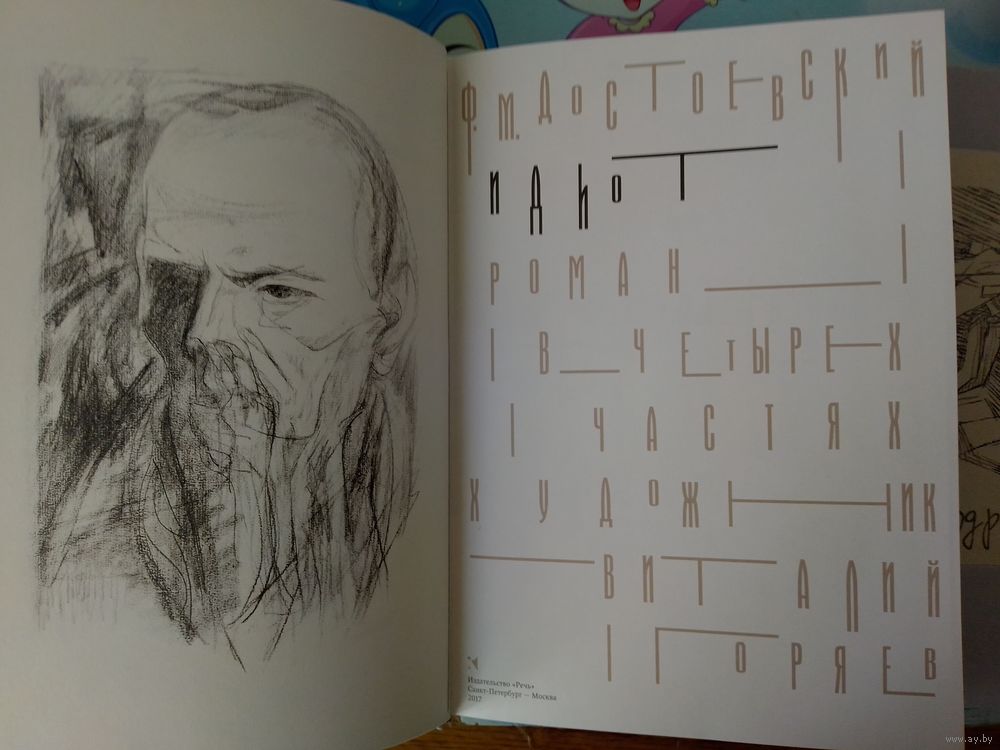 Ф. М. ДОСТОЕВСКИЙ
ИДИОТ
РОМАН
В ЧЕТЫРЕХ
ЧАСТЯХ
ХУДОЖНИК
ВИТАЛИЙ
ГОРЯЕВ
Издательство «Речь»
Санкт-Петербург — Москва
2017
www.ay.by